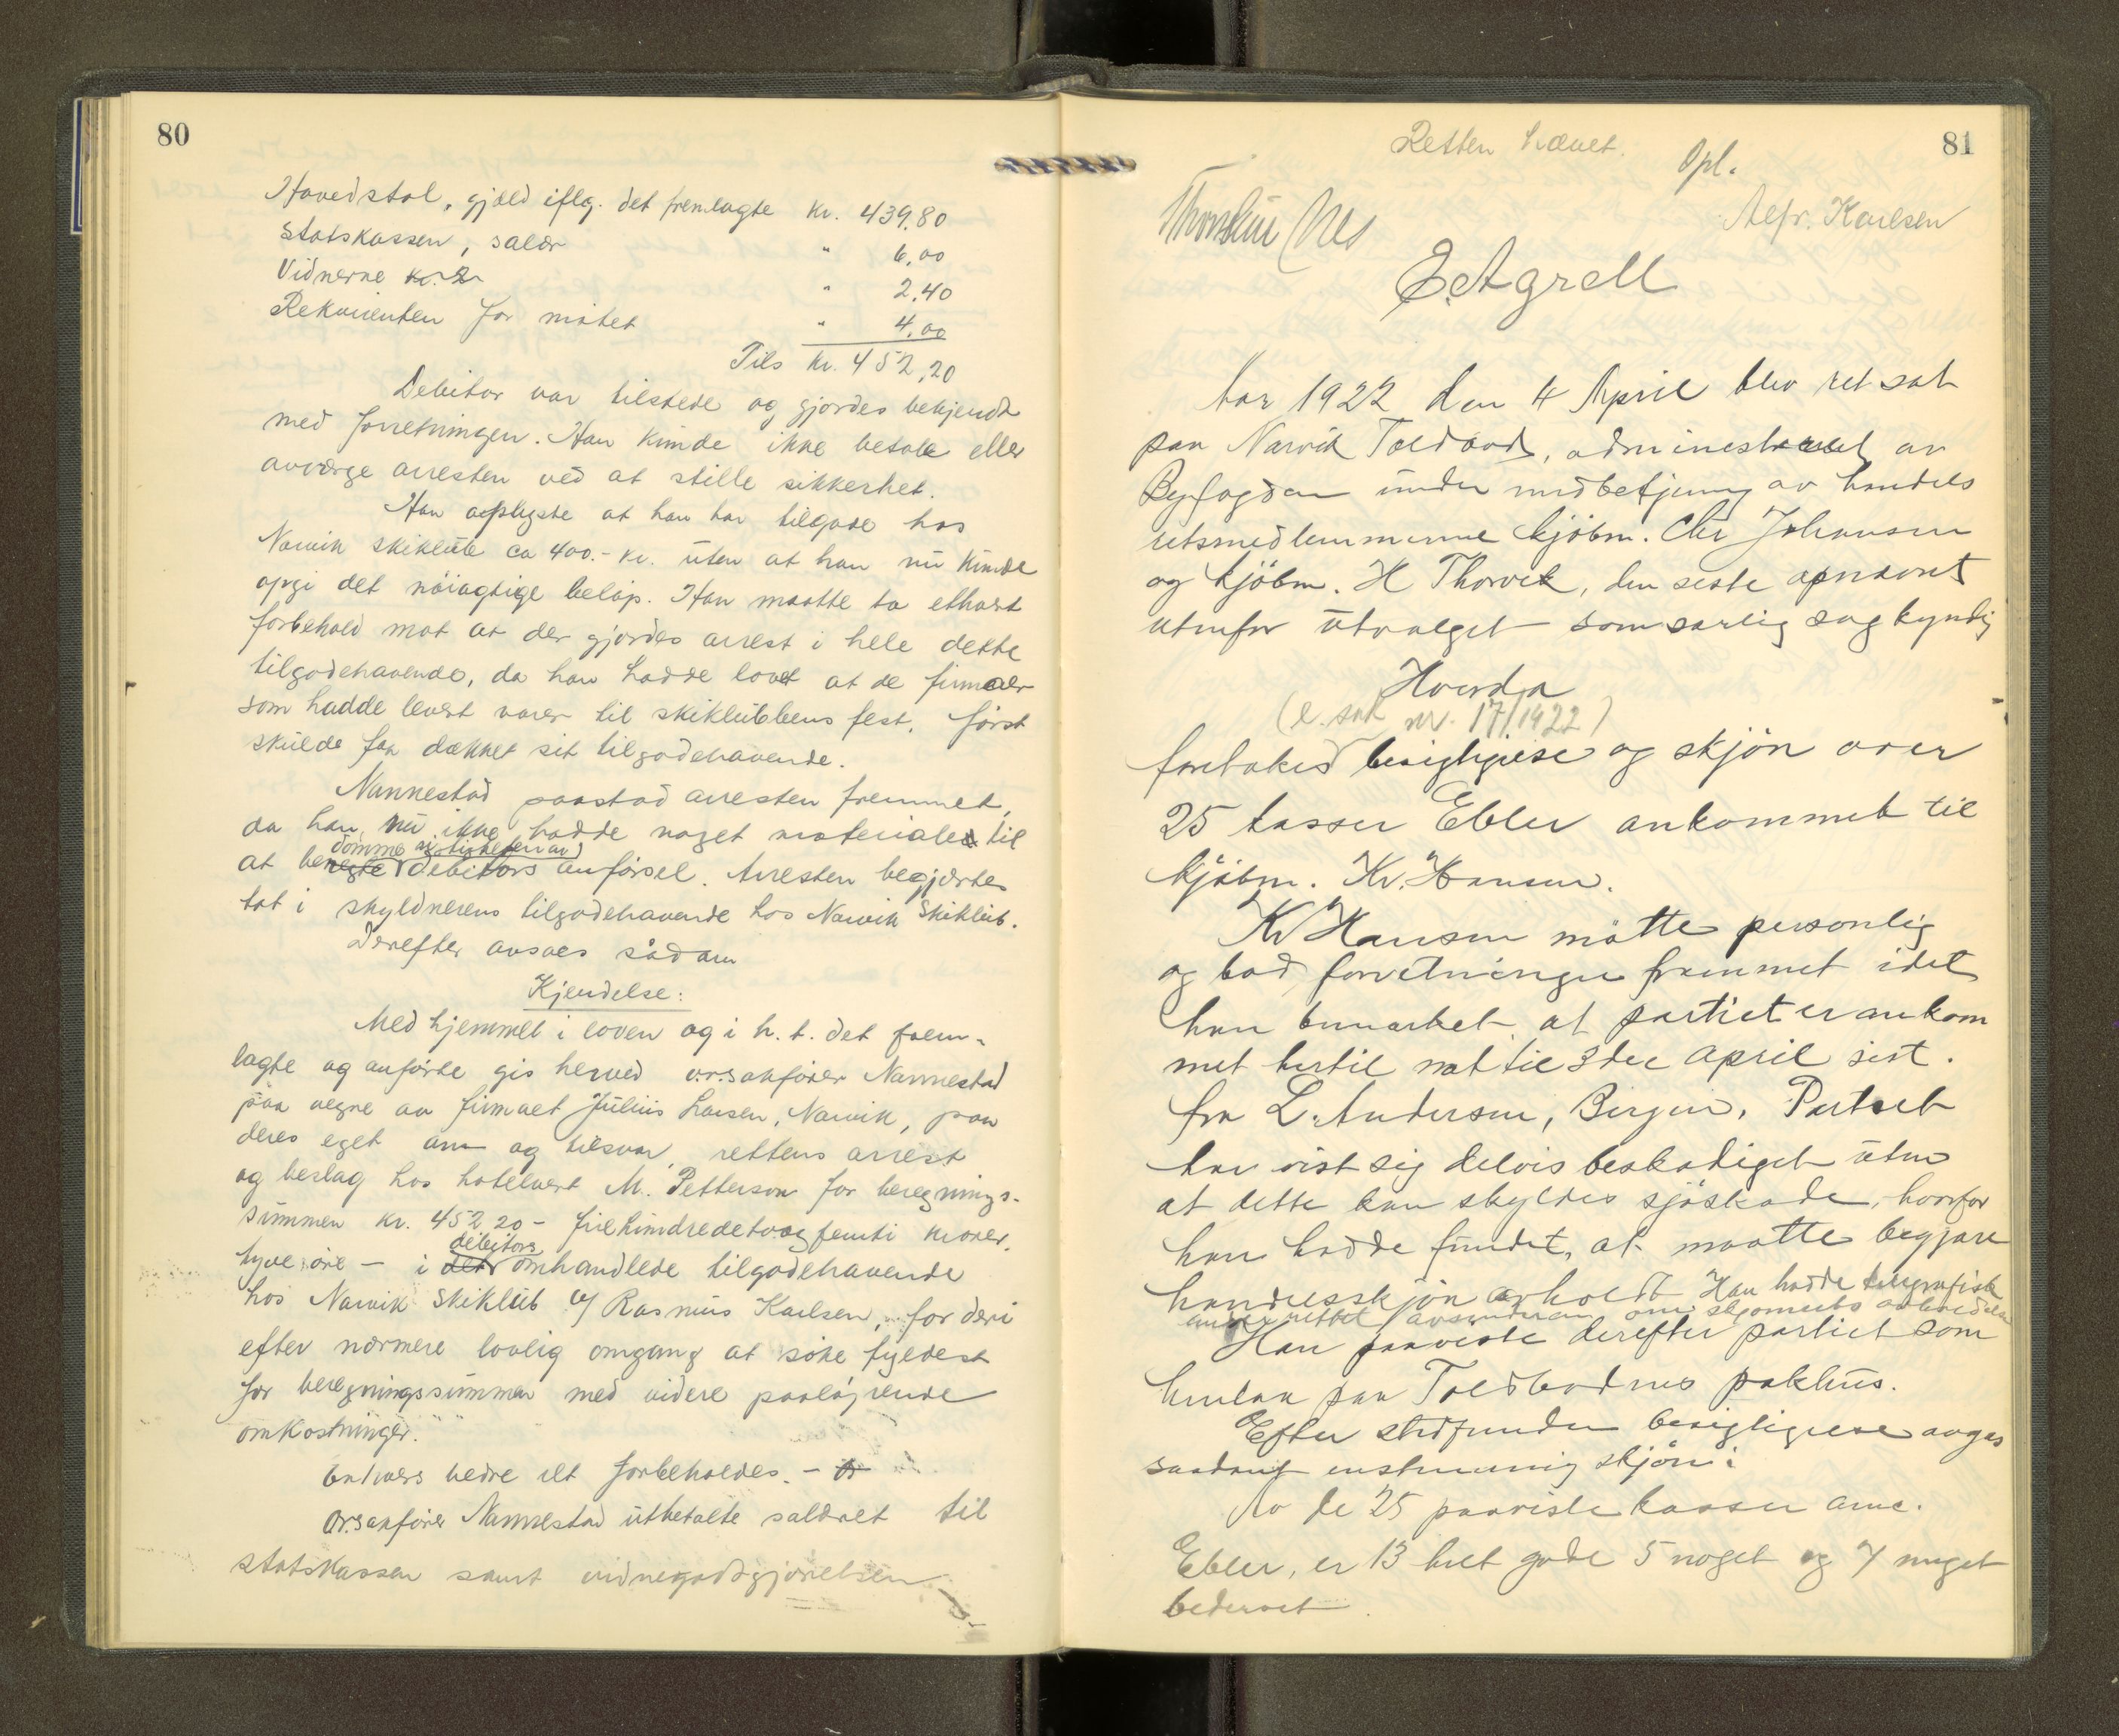 80
Hovedstol, gjæld iflg. det fremlagte kr. 439,80
Statskassen, salær " 6,00
Vidnerne kr. 2 " 2,40
Rekvirenten for møtet " 4,00
Tils kr. 452,20
Debitor var tilstede og gjordes bekjendt
med forretningen. Han kunde ikke betale eller
avværge arresten ved at stille sikkerhet.
Han oplyste at han har tilgode hos
Narvik skiklub ca 400.- kr. uten at han nu kunde
opgi det nöiagtige beløp. Han maatte ta ethvert
forbehold mot at der gjordes arrest i hele dette
tilgodehavende, da han hadde lovet at de firmaer
som hadde levert varer til skiklubbens fest, først
skulde faa dækket sit tilgodehavende.
Nannestad paastod arresten fremmet,
da han nu ikke hadde noget materiale til
dømme rigtigheten av
at benegte debitors anførsel. Arresten begjærtes
tat i skyldnerens tilgodehavende hos Narvik Skiklub.
Derefter avsaes sådan
Kjendelse:
Med hjemmel i loven og i h. t. det frem-
lagte og anførte gis herved o.r.sakfører Nannestad
paa vegne av firmaet Julius Larsen, Narvik, paa
deres eget an- og tilsvar, rettens arrest
og beslag hos hotelvert M. Petterson for beregnings-
summen kr. 452 20 - firehundredetoogfemti kroner,
debitors
tyve øre - i det omhandlede tilgodehavende
hos Narvik Skiklub v/ Rasmus Karlsen, for deri
efter nærmere lovlig omgang at søke fyldest
for beregningssummen med videre paaløpende
omkostninger."
Enhvers bedre ret forbeholdes. -
O.r.sakfører Nannestad utbetalte salæret til
statskassen samt vidnegodtgjørelsen
81
Retten hævet.
Opl.
Alfr. Karlsen
E. Agrell
Aar 1922 den 4 April blev ret sat
paa Narvik Toldbod, administreret av
Byfogden under medbetjening av handels
retsmedlemmerne kjøbm. Chr Johansen
og kjøbm. H Thorvik, den siste opnævnt
utenfor utvalget som særlig sagkyndig
Hvorda
(e. sak nr. 17/1922)
foretokes besigtigelse og skjön over
25 kasser Ebler ankommet til
kjøbm. Kr. Hansen.
Kr Hansen mötte personlig
og bad forretningen fremmet idet
han bemerket at partiet er ankom
met hertil nat til 3die April sist.
fra L. Andersen, Bergen. Partiet
har vist sig delvis beskadiget uten
at dette kan skyldes sjöskade, hvorfor
han hadde fundet at maatte begjære
handelsskjön avholdt. Han hadde telegrafisk
underrettet avsenderen om skjønnets avholdelse
Han paaviste derefter partiet som
henlaa paa Toldbodens pakhus.
Efter stedfunden besigtigelse avgas
saadant enstemmig skjön:
Av de 25 paaviste kasser amr.
Ebler, er 13 helt gode 5 noget og 7 meget
bedervet